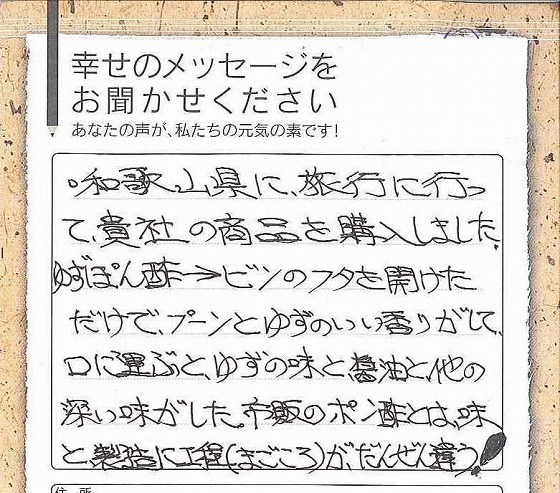 幸せのメッセージを
お聞かせください
あなたの声が、私たちの元気の素です!
。和歌山県に、旅行に行っ
て、貴社の商品を購入しました。
ゆずぽん酢→ビンのフタを開けた
だけで、プーンとゆずのいい香りがして、
口に運ぶと、ゆずの味と醤油と、他の
深い味がした。市販のポン酢とは、味
と製造に工程(まごころ)が、だんぜん違う!
住所